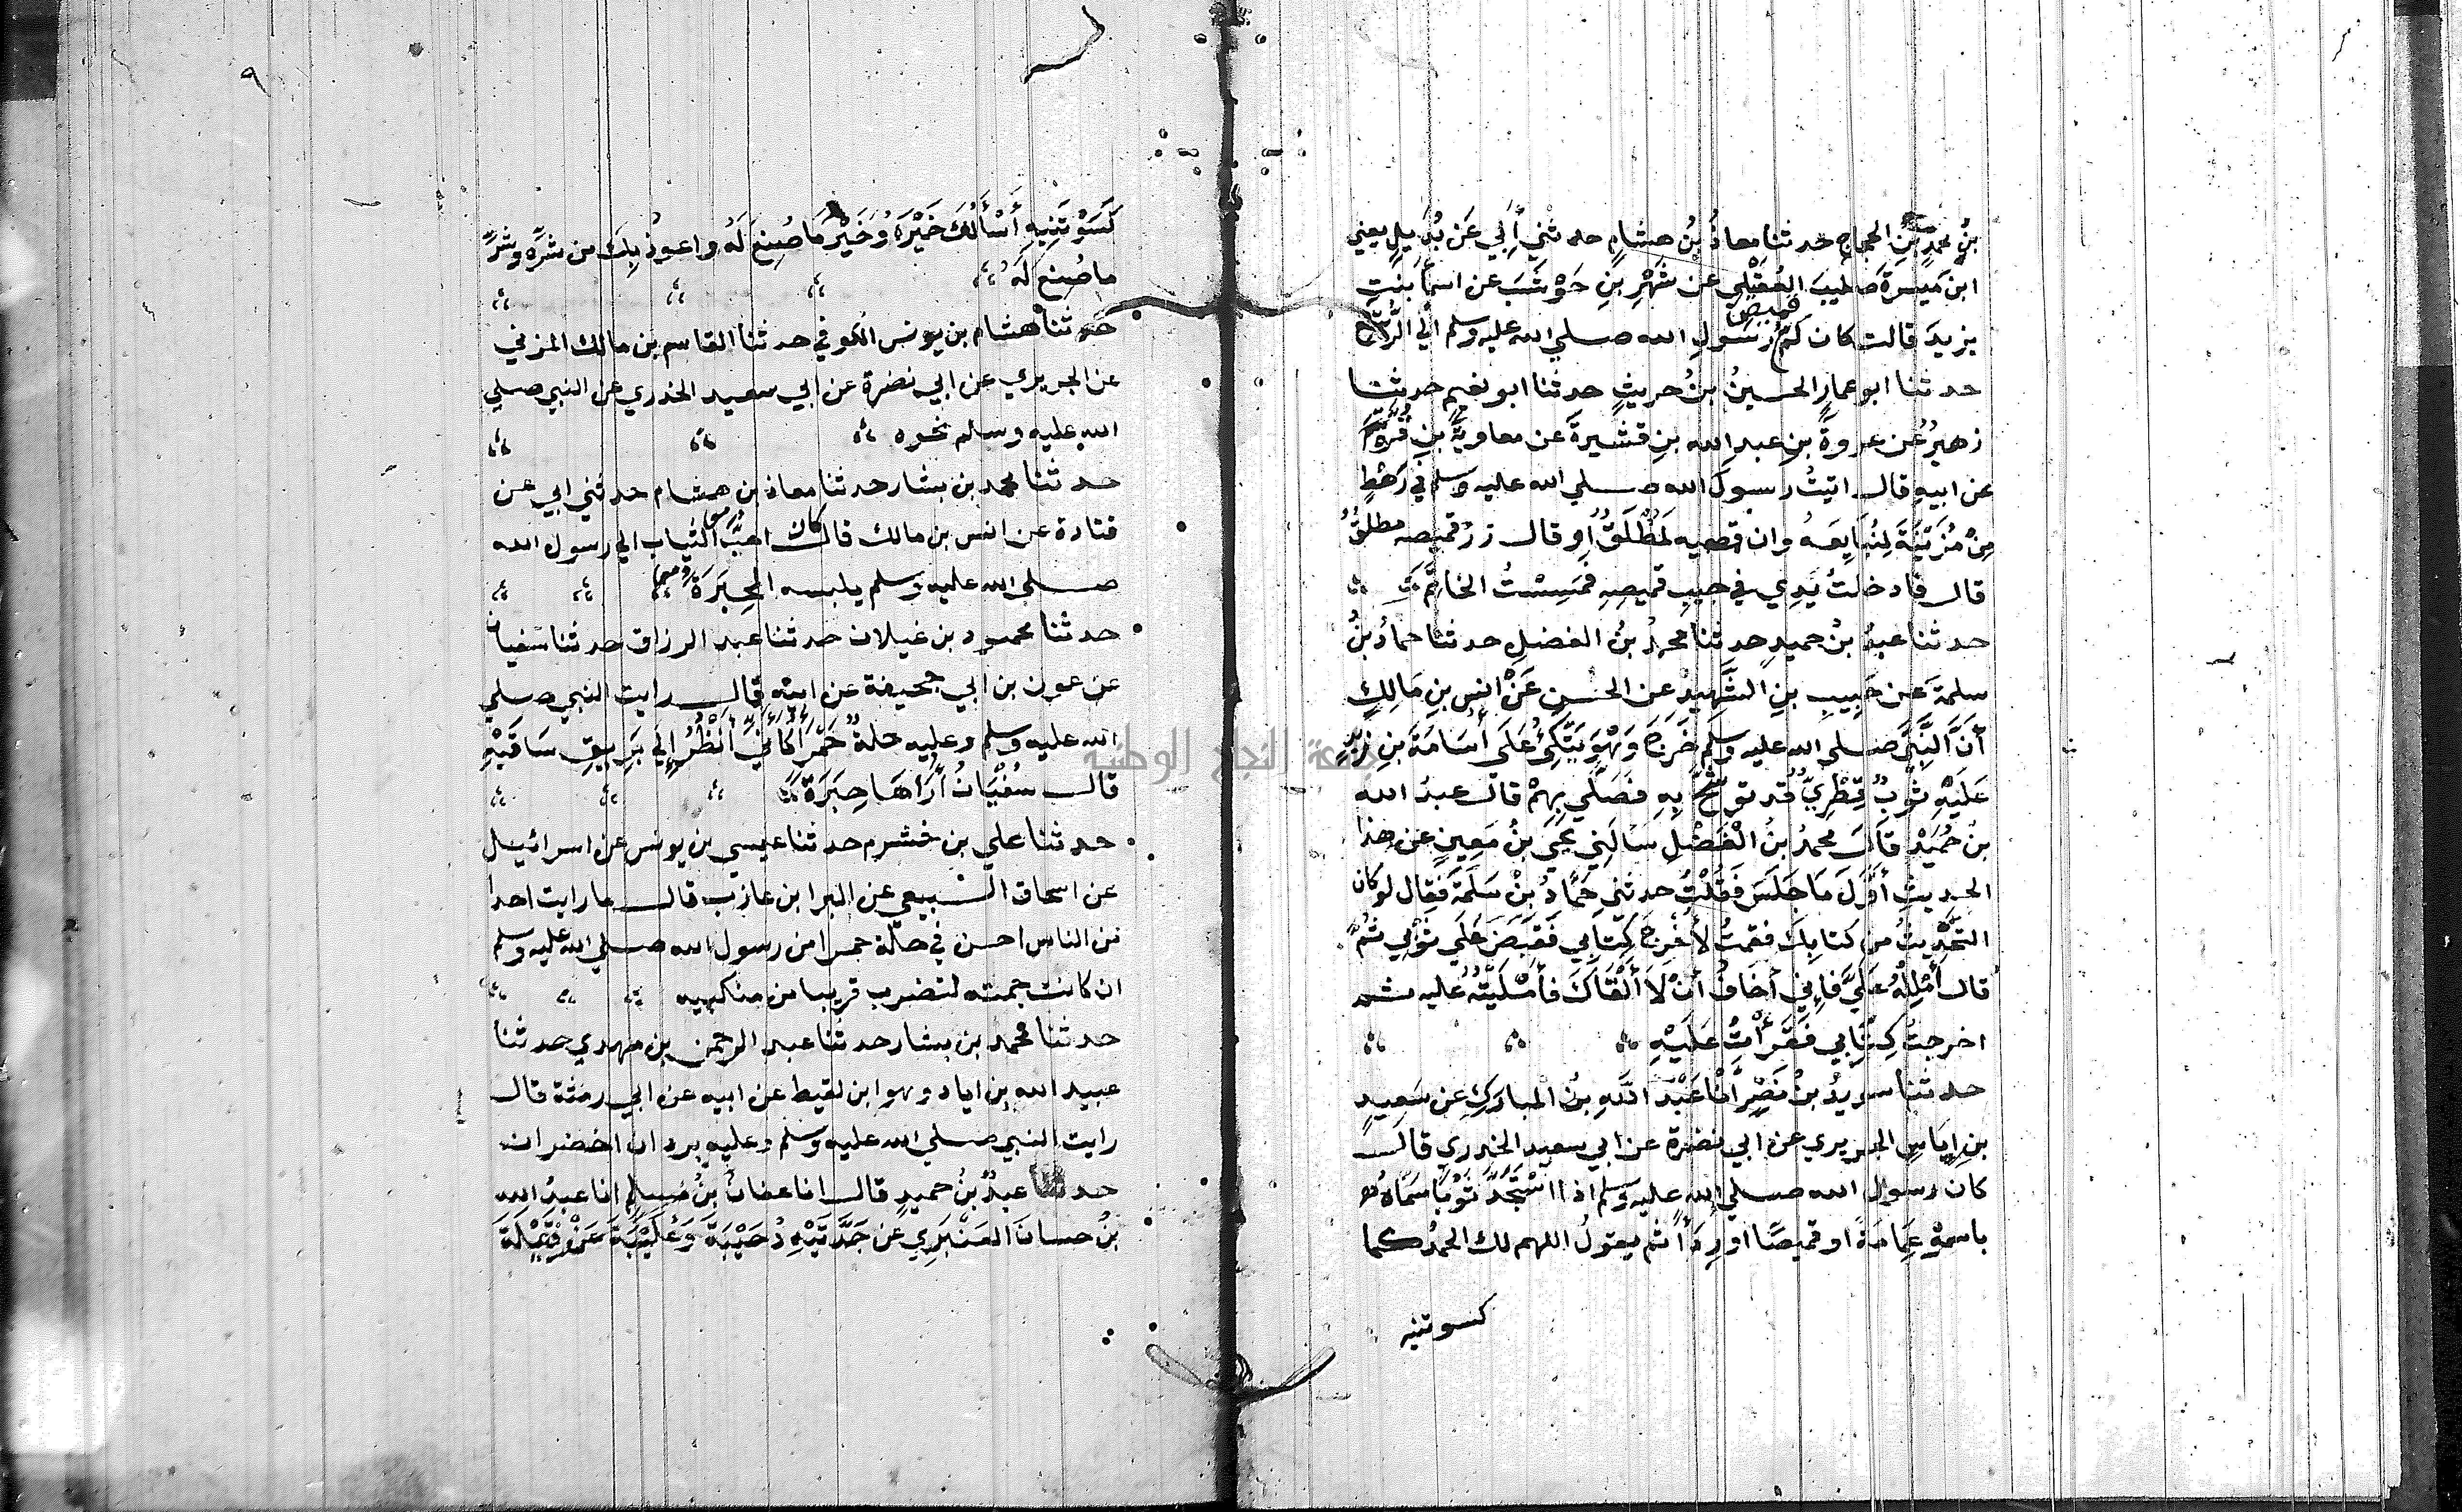 بنُ محمدِ بنِ الحجاج حدثنا معاذُ بنُ هشامٍ حدثني أبي عَن بُدَيلٍ يعني
ابنَ مَيسرةَ صليبَ العُقَيْلي عن شَهْرِ بنِ حَوْشَبَ عن اسما بنتِ
يزيدَ قالت كان كُمُّ قميص رسولِ الله صلي الله عليه وسلم الي الرُّسْغ
حدثنا ابو عمارٍ الحسينُ بنُ حريثٍ حدثنا ابو نعيم حدثنا
زهيرُ عن عروةَ بنِ عبد الله بنِ قشيرةَ عن معاويةَ بنِ قُرَّةَ
عن ابيهِ قال اتيتُ رسولَ الله صلي الله عليه وسلم في رَهْطٍ
مِنْ مُزَيْنَةَ لِنُبَايِعَهُ وان قميصه لَمُطْلَقٌ او قال زرُّ قميصه مطلقٌ
قال فادخلتُ يَدِي في جيبِ قميصِهِ فمَسِسْتُ الخاتَمَ
حدثنا عبدُ بنُ حميدٍ حدثنا محمدُ بنُ الفضلِ حدثنا حمادُ بنُ
سلمةَ عن حَبِيبِ بنِ الشَّهِيدِ عن الحسنِ عَنْ انسِ بنِ مَالِكٍ
أَنَّ النَّبِيَّ صلي الله عليه وسلم خَرَجَ وَهُوَ يَتَّكِئُ عَلَى أُسَامَةَ بنِ زَيْدٍ
عَلَيْهِ ثَوْبٌ قِطْرِيٌّ قد توشَّحَ بِهِ فَصَلَّي بِهِمْ قال عبدُ الله
بنُ حُمَيْدٍ قَالَ محمدُ بنُ الْفَضْلِ سَالَنِي يحيَ بنُ مَعِينٍ عن هذا
الحديثِ أَوَّلَ مَا جَلَسَ فَقُلْتُ حدثني حَمَّادُ بنُ سَلَمَةَ فقال لو كان
التَّحْدِيثُ من كتابِكَ فقمتُ لأُخْرِجَ كِتَابِي فَقَبَضَ عَلَي ثوْبِي ثُمَّ
قال أَمْلِلْهُ عَلَيَّ فَإِنِّي أَخَافُ أَنْ لاَ أَلْقَاكَ فَأَمْلَيْتُهُ عليه ثم
اخرجتُ كِتَابِي فَقَرَأْتُ عَلَيْهِ
حدثنا سويدُ بنُ نَصْرٍ أَنَا عَبْدُ اللَّهِ بنُ المباركِ عن سَعِيدِ
بنِ إِيَاسِ الجريري عن ابي نضرة عن ابي سعيد الخدري قال
كان رسول الله صلي الله عليه وسلم اذا اسْتَجَدَّ ثَوْبًا سَمَّاهُ
باسمهِ عِمَامَةً او قميصًا او رِدَأً ثم يقولُ اللهم لك الحمدُ كما
كسوتنيه
٩
كَسَوْتَنِيهِ أَسْأَلُكَ خَيْرَهُ وَخَيْرَ مَا صُنِعَ لَهُ واعوذُ بِكَ من شرِّهِ وشرِّ
ما صُنِعَ لَهُ
حدثنا هشام بن يونس الكوفي حدثنا القاسم بن مالك المزني
عن الجريري عن ابي نضرة عن ابي سعيد الخدري عن النبي صلي
الله عليه وسلم نحوه
حدثنا محمد بن بشار حدثنا معاذ بن هشام حدثني ابي عن
قتادة عن انس بن مالك قال كان احبَّ الثياب الي رسول الله
صلي الله عليه وسلم يلبسه الحِبَرَةَ
حدثنا محمود بن غيلان حدثنا عبد الرزاق حدثنا سفيان
عن عون بن ابي جحيفة عن ابيه قال رايت النبي صلي
الله عليه وسلم وعليه حلةٌ حَمْرَا كَأَنِّي أَنْظُرُ إِلَي بَرِيقِ سَاقَيْهِ
قال سُفْيَانُ أُرَاهَا حِبَرَةً
حدثنا علي بن خشرم حدثنا عيسي بن يونس عن اسرائيل
عن اسحاق السبيعي عن البرا ابن عازب قال ما رايت احدا
من الناس احسن في حلّة حمرا من رسول الله صلي الله عليه وسلم
ان كانت جمته لتضرب قريبا من منكبيه
حدثنا محمد بن بشار حدثنا عبد الرحمن بن مهدي حدثنا
عبيد الله بن اياد وهو ابن لقيط عن ابيه عن ابي رمثة قال
رايت النبي صلي الله عليه وسلم وعليه بردان اخضران
حدثنا عبدُ بنُ حميدٍ قال انا عفانُ بنُ مسلمٍ انا عبدُ الله
بنُ حسانَ العَنْبَرِي عن جَدَّتَيْهِ دُحَيْبَةَ وَعُلَيْبَةَ عَنْ قَيْلَةَ
جامعة النجاح الوطنية